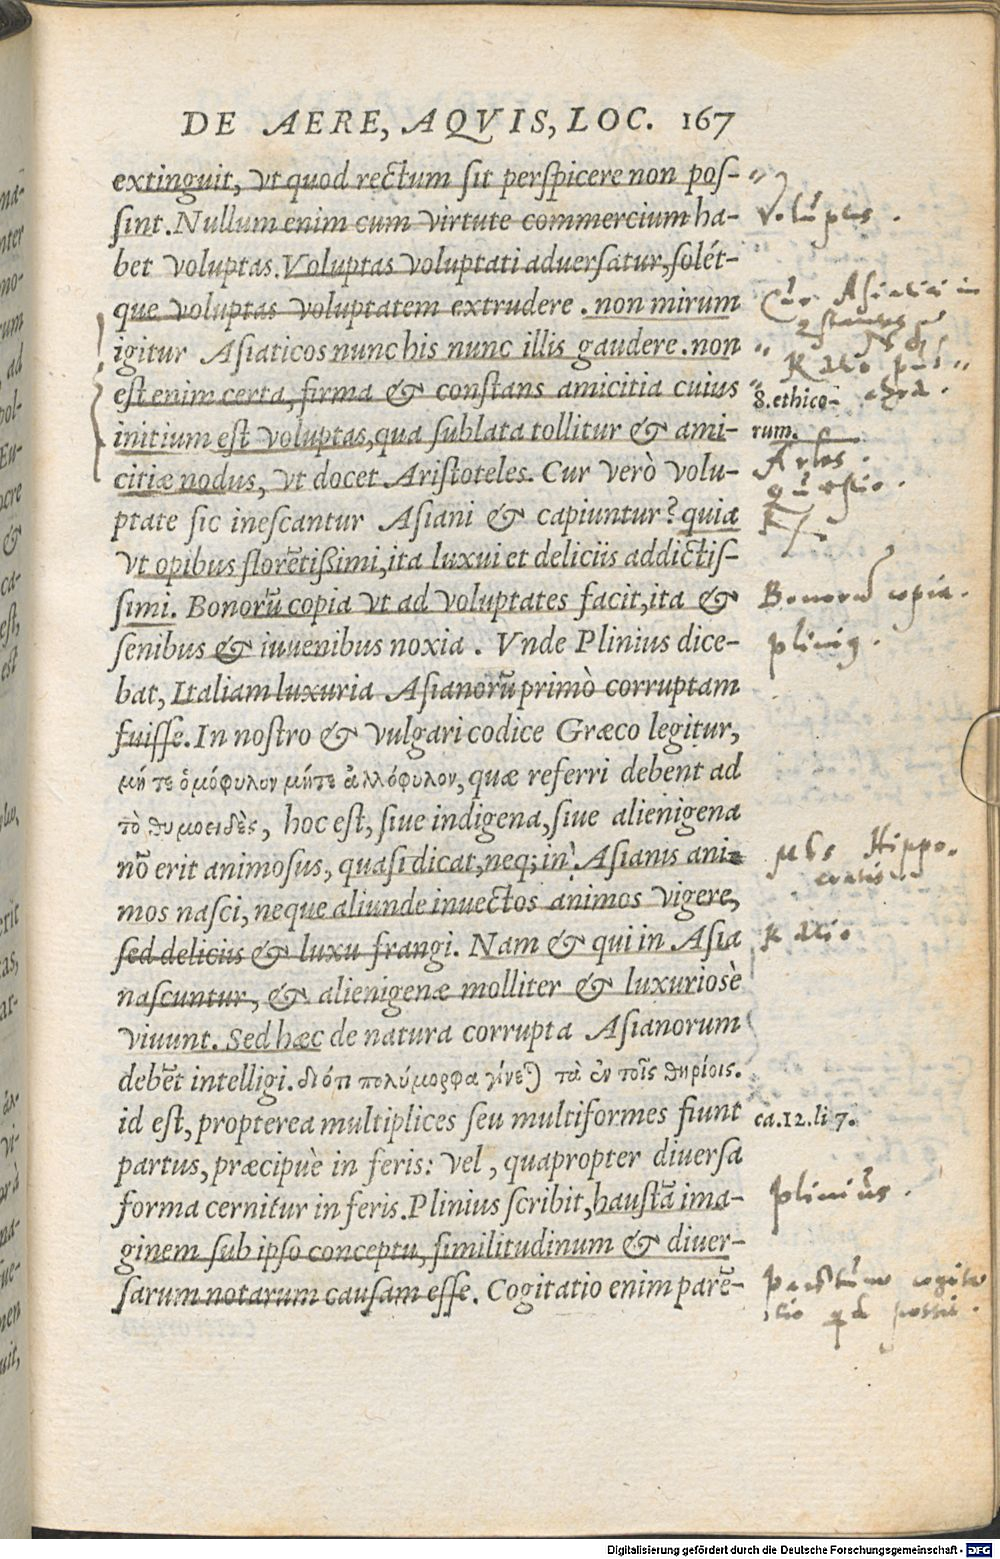 DE AERE, AQVIS, LOC. 167
extinguit, vt quod rectum sit perspicere non pos-
sint. Nullum enim cum virtute commercium ha-
bet voluptas. Voluptas voluptati aduersatur, solét-
que voluptas voluptatem extrudere. non mirum
igitur Asiaticos nunc his nunc illis gaudere. non
est enim certa, firma & constans amicitia cuius
initium est voluptas, qua sublata tollitur & ami-
citiæ nodus, vt docet Aristoteles. Cur verò volu-
ptate sic inescantur Asiani & capiuntur? quia
vt opibus florẽtißimi, ita luxui et deliciis addictis-
simi. Bonorũ copia vt ad voluptates facit, ita &
senibus & iuuenibus noxia. Vnde Plinius dice-
bat, Italiam luxuria Asianorũ primò corruptam
fuisse. In nostro & vulgari codice Græco legitur,
μήτε ὁμόφυλον μήτε ἀλλόφυλον, quæ referri debent ad
τὸ θυμοειδὲς, hoc est, siue indigena, siue alienigena
nõ erit animosus, quasi dicat, neq; in Asianis ani-
mos nasci, neque aliunde inuectos animos vigere,
sed deliciis & luxu frangi. Nam & qui in Asia
nascuntur, & alienigenæ molliter & luxuriosè
viuunt. Sed hæc de natura corrupta Asianorum
debẽt intelligi. διότι πολύμορφα γίνεται τὰ ἐν τοῖς θηρίοις.
id est, propterea multiplices seu multiformes fiunt
partus, præcipuè in feris: vel, quapropter diuersa
forma cernitur in feris. Plinius scribit, haustã ima-
ginem sub ipso conceptu, similitudinum & diuer-
sarum notarum causam esse. Cogitatio enim parẽ-
Voluptas.
Cur Asiatici in
Ratio
8. ethico-
rum.
quæstio.
Bonorũ copia.
Plinius.
Hippo-
cratis
Ratio
ca. 12. li 7.
Plinius.
Parẽtum cogita
tio qd possit.